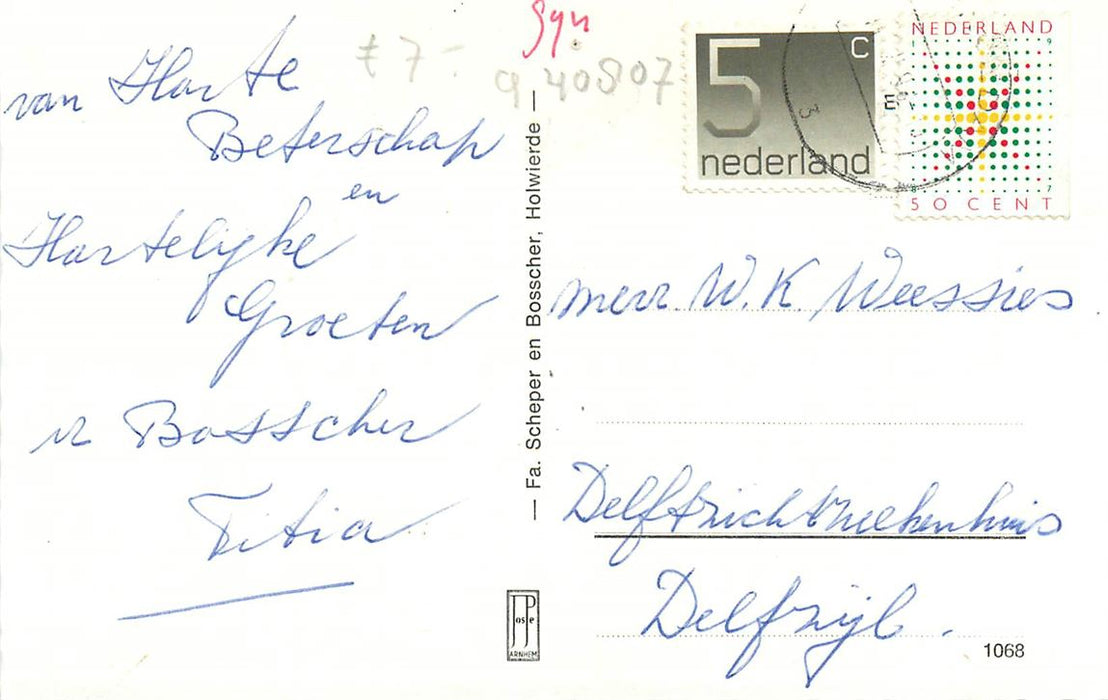 van Harte
Beterschap
en
Hartelijke
Groeten
Bosscher
Titia
Gyn
£ 7 -
a 40807
— Fa. Scheper en Bosscher, Holwierde —
5 c
nederland
NEDERLAND
50 CENT
E
merr. W.K. Weessies
Delfzicht
Delfzijl.
JosPe
ARNHEM
1068